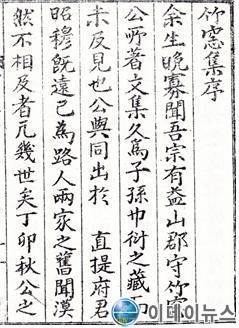 竹窓集序
余生晩寡聞吾宗有益山郡守竹窓
公所著文集久爲子孫巾衍之藏
未及見也公與同出於 直提府君
昭穆旣遠已爲路人兩家之舊聞漠
然不相及者凡幾世矣丁卯秋公之
이데이뉴스